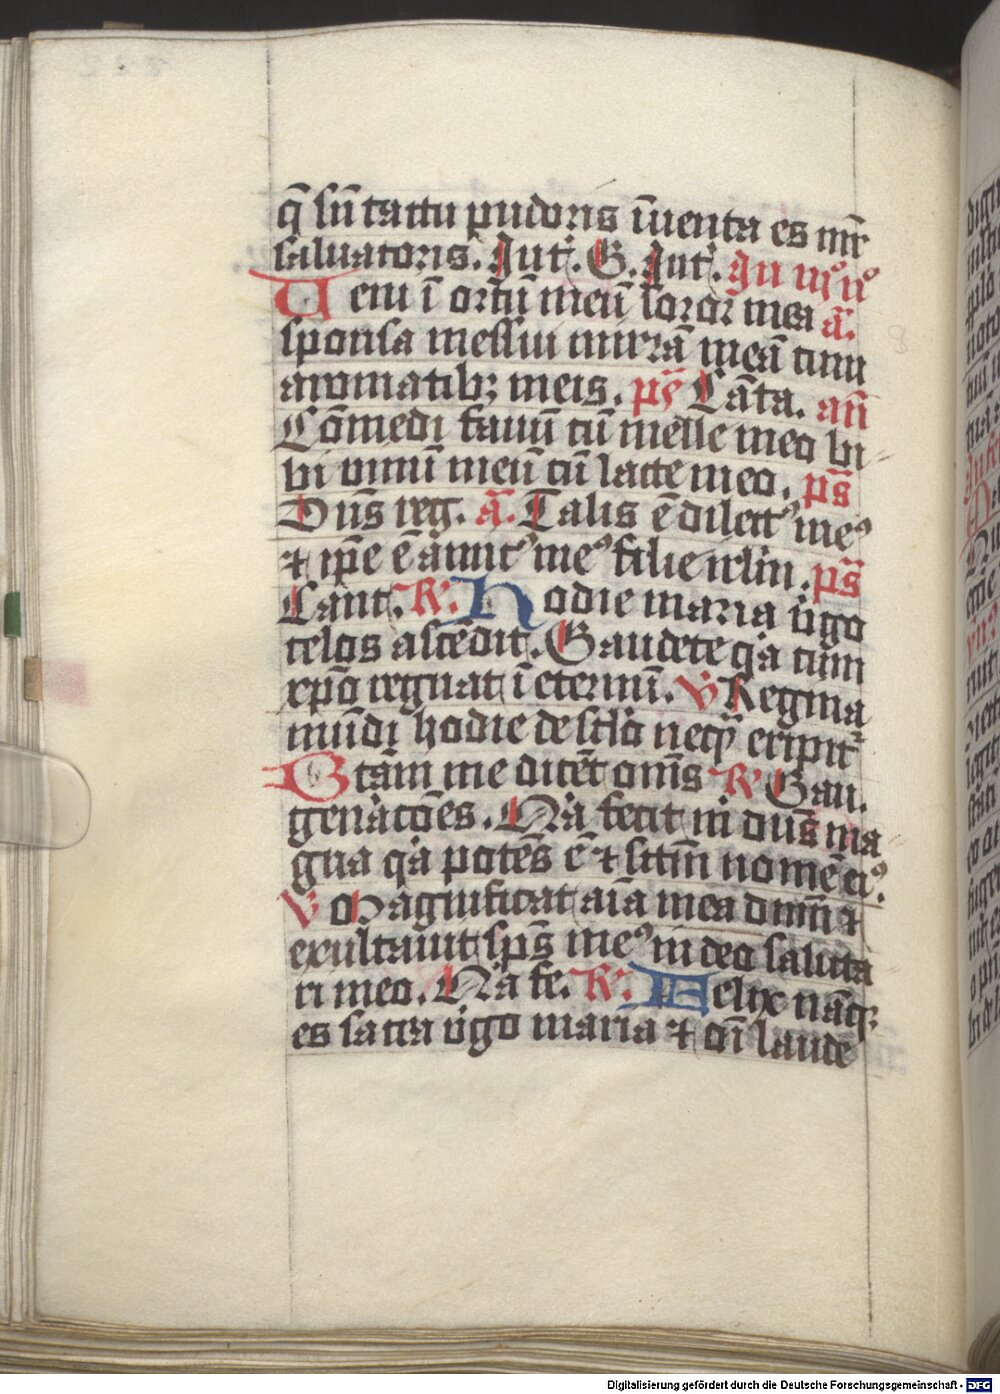 q̄ sn̄ tactu pudoris īuenta es mr̄
saluatoris. Int. G. Int. In iij° n°
Ueni ī ortū meū soror mea ā.
sponsa messui mirrā meā cum
aromatibꝫ meis. ps Cāta. an̄
Cōmedi fauū cū melle meo bi
bi vinū meū cū lacte meo. ps̄
Dn̄s reg. ā. Talis ē dilectꝰ meꝰ
⁊ ip̄e ē amicꝰ meꝰ filie irlm̄. ps̄
Cant. R. Hodie maria v̄go
celos ascēdit. Gaudete q̇a cum
xp̄o regnat ī eternū. V Regina
mūdi hodie de sc̄lo neq̄ eripit᷑
Gctām me dicēt om̄s R Gau.
gen̄acōes. Q̇a fecit m̄ dn̄s ma
gna q̇a potēs ē ⁊ sctm̄ nomē eiꝰ.
V Magnificat aīa mea dnm̄ ⁊
exultauit sp̄s meꝰ in deo saluta
ri meo. Q̇a fe. R. Felix nāqꝫ
es sacra v̄go maria ⁊ om̄ laude
Digitalisierung gefördert durch die Deutsche Forschungsgemeinschaft - DFG